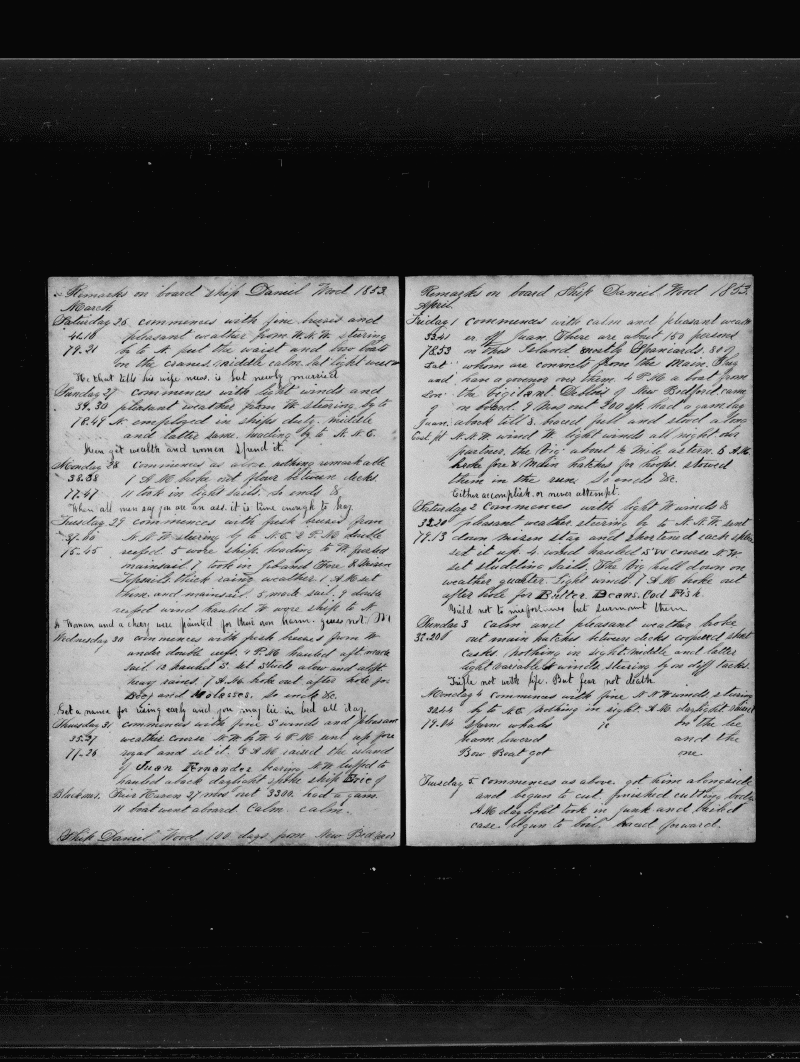 Remarks on board Ship Daniel Wood 1853.
March
Saturday 26 commences with fine breeze and
41.10 pleasant weather from W.N.W. steering
79.21 by to N. put the waist and bow boats
on the cranes. middle calm. last light
He that tells his wife news, is but newly married
Sunday 27 commences with light winds and
39.30 pleasant weather from W steering by to
78.49 N. employed in ships duty. middle
and latter same. heading by to N.N.E.
Men get wealth and women spend it.
Monday 28 Commences as above nothing remarkable
38.38 1 A.M. broke out flour between decks.
77.47 11 took in light sails. So ends &
When all men say you are an ass, it is time enough to bray.
Tuesday 29 commences with fresh breezes from
N.N.W steering by to N.E. 2 P.M. double
75.45 reefed. 5 wore ship. heading to W. furled
mainsail 7. took in jib and Fore & Mizen
Topsails thick rainy weather 1 A.M. set
them and mainsail. 5 made sail. 9 double
reefed wind hauled W wore ship to N.
A Woman and a cherry are painted for their own harm. guess not
Wednesday 30 commences with fresh breezes from W
under double reefs. 4 P.M. hauled aft. made
sail. 12 hauled S. set Studs alow and aloft.
heavy rains. 1 A.M. broke out after hole for
Beef and Molasses. So ends &c.
Get a name for rising early and you may lie in bed all day.
Thursday 31 commences with fine S winds and pleasant
35.27 weather course N.W. by W. 4 P.M. sent up fore
77.26 royal and set it. 5 A.M. raised the island
of Juan Fernandez bearing N.W. luffed to
hauled aback daylight spoke ship Eric of
Fair Haven 27 mos out 3300. had a gam.
11 boat went aboard Calm. calm.
Ship Daniel Wood 100 days from New Bedford
Remarks on board Ship Daniel Wood 1853.
April.
Friday 1 commences with calm and pleasant weath
33.41 er of Juan. There are about 150 persons
78.53 on this Island mostly Spaniards. 80 of
Lat whom are convicts from the Main. They
and have a governor over them. 4 P.M. a boat from
Lon the Vigilant Deblois of New Bedford, came
of on board. 9 Mos out 200 sp. had a gam lay
Juan. aback till 8. braced full and stood along
N.N.W. wind W light winds all night our
partner, the Vig. about ½ Mile astern. 5 A.M.
broke fore & Main hatches for hoops. stowed
them in the run. So ends &c.
Either accomplish, or never attempt.
Saturday 2 Commences with light W winds &
33.20 pleasant weather. steering by to N.N.W. sent
79.13 down mizen stay and shortened each splice
set it up. 4. wind hauled S W course N.W.
set studding sails. The Vig hull down on
weather quarter. light winds 7 A.M. broke out
after hole for Butter Beans. Cod Fish.
Yield not to misfortunes but surmount them.
Sunday 3 calm and pleasant weather broke
32.20 out main hatches between decks coopered shook
casks. Nothing in sight, middle and latter
light variable winds, steering by on diff tacks.
Trifle not with life. But fear not death.
Monday 4 commences with fine N.W winds, steering
32.44 by to N.E. nothing in sight. A.M. daylight raised
79.04 Sperm whales to the lee
beam lowered and the
Bow Boat got one.
Tuesday 5. commences as above. got him alongside
and begun to cut. finished cutting body.
A.M. daylight took in junk and bailed
case. begun to boil. head forward.